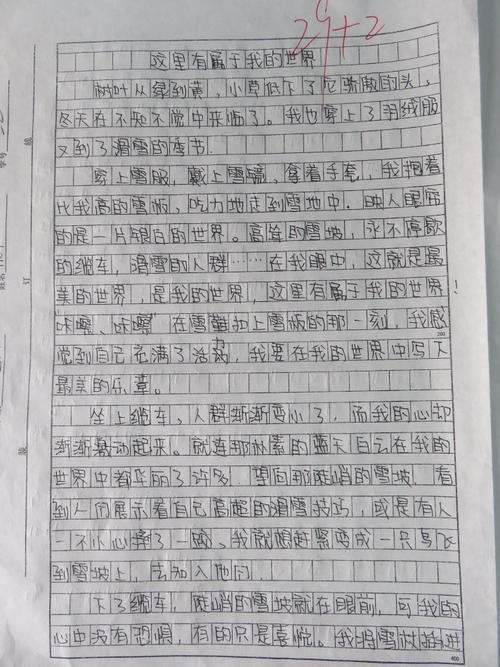 29+2
这里有属于我的世界
树叶从绿到黄，小草低下了它骄傲的头，
冬天在不知不觉中来临了。我也穿上了羽绒服
又到了滑雪的季节.
穿上雪服，戴上雪镜，拿着手套，我抱着
比我高的雪板，吃力地走到雪地中．映入眼帘
的是一片银白的世界。高耸的雪坡，永不停歇
的缆车，滑雪的人群……在我眼中，这就是最
美的世界，是我的世界，这里有属于我的世界！
"咔嚓、咔嚓"在雪鞋扣上雪板的那一刻，我感
200
觉到自己充满了活力，我要在我的世界中写下
最美的乐章。
坐上缆车，人群渐渐变小了，而我的心却
渐渐激动起来。就连那朴素的蓝天白云在我的
世界中都华丽了许多．望向那陡峭的雪坡．看
到人们展示着自己高超的滑雪技巧，或是有人
一不小心摔了一跤、我就想赶紧变成一只鸟飞
到雪坡上，去加入他们．
下了缆车，陡峭的雪坡就在眼前，可我的
心中没有恐惧，有的只是喜悦。我将雪杖插进
400